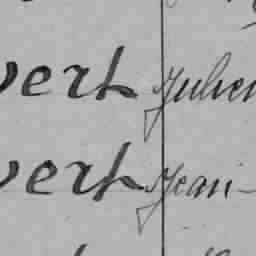 vert Julien
vert Jean-